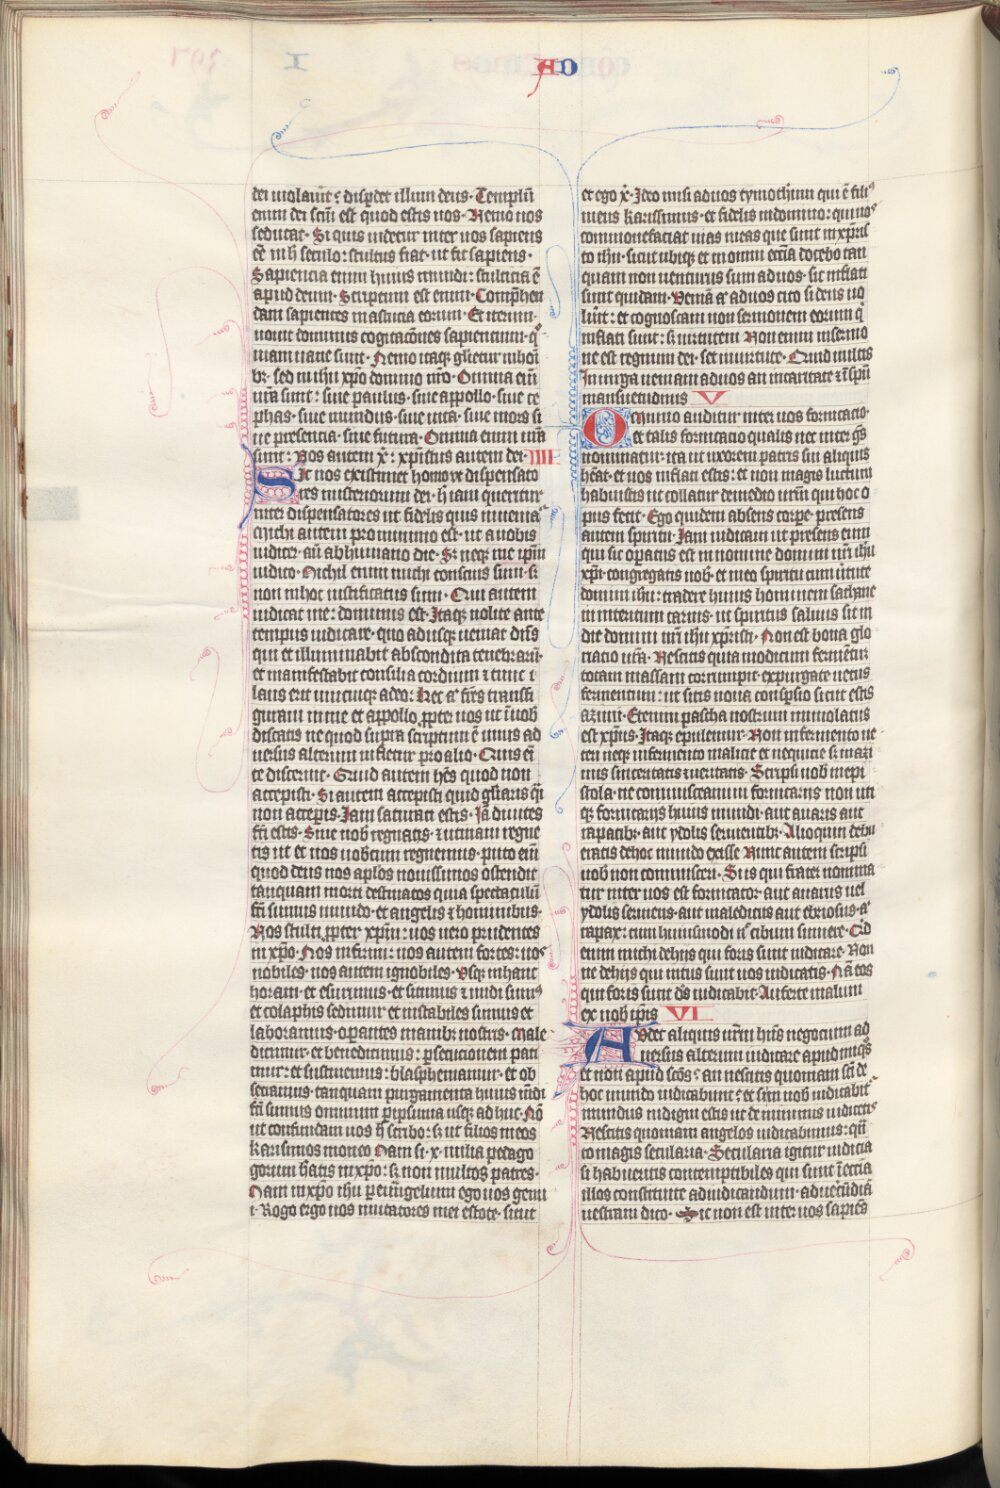 AD
dei violaverit disperdet illum deus · Templū
enim dei scm̄ est quod estis vos · Nemo vos
seducat · Si quis videtur inter vos sapiens
eē in h̄ seculo : stultus fiat · ut sit sapiens ·
Sapiencia enim huius mundi : stulticia ē
apud deum · Scriptum est enim · Compͬhen
dam sapientes in astucia eorum · Et iterum
novit dominus cogitacōnes sapiencium · q̄
niam vane sunt · Nemo itaqꝫ glietur in hoī
bꝫ · sed in ihū xp̄o domino nr̄o · Omnia eī
vr̄a sunt : sive paulus · sive appollo · sive ce
phas · sive mundus · sive vita · sive mors si
ve presencia · sive futura · Omnia enim vr̄a
sunt : Vos autem x̄ : xp̄istus autem dei · IIII
Sic nos existimet homo ut dispensato
res misteriorum dei · h̄ iam queritur
inter dispensatores ut fidelis quis inveniaͭ
Michi autem pro minimo est · ut a vobis
iudicer · aut ab humano die · Sꝫ neqꝫ me ip̄m
iudico · Nichil enim michi conscius sum · sꝫ
non in hoc iustificatus sum · Qui autem
iudicat me : dominus est · Itaqꝫ nolite ante
tempus iudicare · quo adusqꝫ veniat dn̄s
qui et illuminabit abscondita tenebrarū ·
et manifestabit consilia cordium ⁊ tunc
laus erit unicuiqꝫ a deo : Hec aͭ fr̄es transfi
guravi in me et appollo ꝓpter vos ut ī nob̄
discatis ne quod supra scriptum ē unus ad
versus alterum infletur pro alio · Quis eī
te discernit · Quid autem hēs quod non
accepisti · Si autem accepisti quid gliaris q̄i
non acceperis · Iam saturati estis · Iā divites
fc̄i estis · Sine nob̄ regnatis · ⁊ utinam regne
tis ut et nos vobiscum regnemus · puto eī
quod deus nos aplos novissimos ostendit
tanquam morti destinatos quia spectaculū
fc̄i sumus mundo · et angelis ⁊ hominibus ·
Nos stulti ꝓpter xp̄m : vos vero prudentes
in xp̄o · Nos infirmi : vos autem fortes : vos
nobiles · nos autem ignobiles · Vsqꝫ in hanc
horam · et esurimus · et sitimus ⁊ nudi sumꝰ
et colaphis cedimur et instabiles sumus et
laboramus · operantes manibꝫ nostris · Male
dicimur · et benedicimus : ꝑsecucionem pati
mur : et sustinemus : blasphemamur · et ob
secramus · tanquam purgamenta huius mūdi
fc̄i sumus omnium ꝑipsima usqꝫ ad huc · Nō
ut confundam vos h̄ scribo : sꝫ ut filios meos
karissimos moneo Nam si · x · milia pedago
gorum h̄atis in xp̄o : sꝫ non multos patres ·
Nam in xp̄o ihū per ewngelium ego vos genui
· Rogo ergo vos imitatores mei estote · sicut
et ego x̄ · Ideo misi ad vos tymotheum qui ē filiꝰ
meus karissimus · et fidelis in domino : qui vos
commonefaciat vias meas que sunt in xp̄ris
to ihū · sicut ubiqꝫ et in omni ecc̄ia doceo tan
quam non venturus sum ad vos · sic inflati
sunt quidam · Veniā aͭ ad vos cito si deus vo
lūit : et cognoscam non sermonem eorum q̄
inflati sunt : sꝫ virtutem Non enim in sermo
ne est regnum dei · set in virtute · Quid vultis
In virga veniam ad vos an in caritate ⁊ ī spū
mansuetudinis V
Omnino auditur inter vos fornicacio ·
et talis fornicacio qualis nec inter gēs
nominatur : ita ut uxorem patris sui aliquis
heāt · et vos inflati estis : et non magis luctum
habuistis ut tollatur de medio vrm̄ qui hoc o
pus fecit · Ego quidem absens corpe · presens
autem spiritu · Iam iudicavi ut presens eum
qui sic operatus est in nomine domini nr̄i ihū
xp̄i · congregatis vob̄ · et meo spiritu cum v̄tute
domini ihū : tradere huius hominem sathane
in interitum carnis · ut spiritus salvus sit in
die domini nr̄i ihū xp̄risti · Non est bona glo
riacio vr̄a · Nescitis quia modicum fermētū
totam massam corrumpit · expurgate vetus
fermentum : ut sitis nova consꝑsio sicut estis
azimi · Etenim pascha nostrum immolatus
est xp̄us · Itaqꝫ epulemur · Non in fermento ve
teri neqꝫ in fermento malicie et nequicie sꝫ in azi
mis sinceritatis veritatis · Scripsi vob̄ in epi
stola · ne commisceamini fornicariis non uti
qꝫ fornicariis huius mundi · aut avaris aut
rapacibꝫ · aut ydolis servientibꝫ · Alioquin debu
eratis de hoc mundo exisse Nunc autem scripsi
vob̄ non commisceri · Si is qui frater nomina
tur inter vos est fornicator · aut avarus vel
ydolis serviens · aut maledicus aut ebriosus · aͭ
rapax : cum huiusmodi n̄ cibum sumere · Qͥd
enim michi de hiis qui foris sunt iudicare · Non
ne de hiis qui intus sunt vos iudicatis · Nā eos
qui foris sunt ds̄ iudicabit · Auferte malum
ex vob̄ ip̄is VI
Audet aliquis vrm̄ hn̄s negocium ad
versus alterum iudicare apud iniqꝰs
et non apud scōs : an nescitis quoniam scī de
hoc mundo iudicabunt : et si in vob̄ iudicabitͬ
mundus indigni estis ut de minimis iudicetis
Nescitis quoniam angelos iudicabimus : qm̄
to magis secularia · Secularia igitur iudicia
si habueritis contemptibiles qui sunt ī ecc̄ia
illos constituite ad iudicandum · ad verēcūdiā
vestram dico · Sic non est inter vos sapiēs